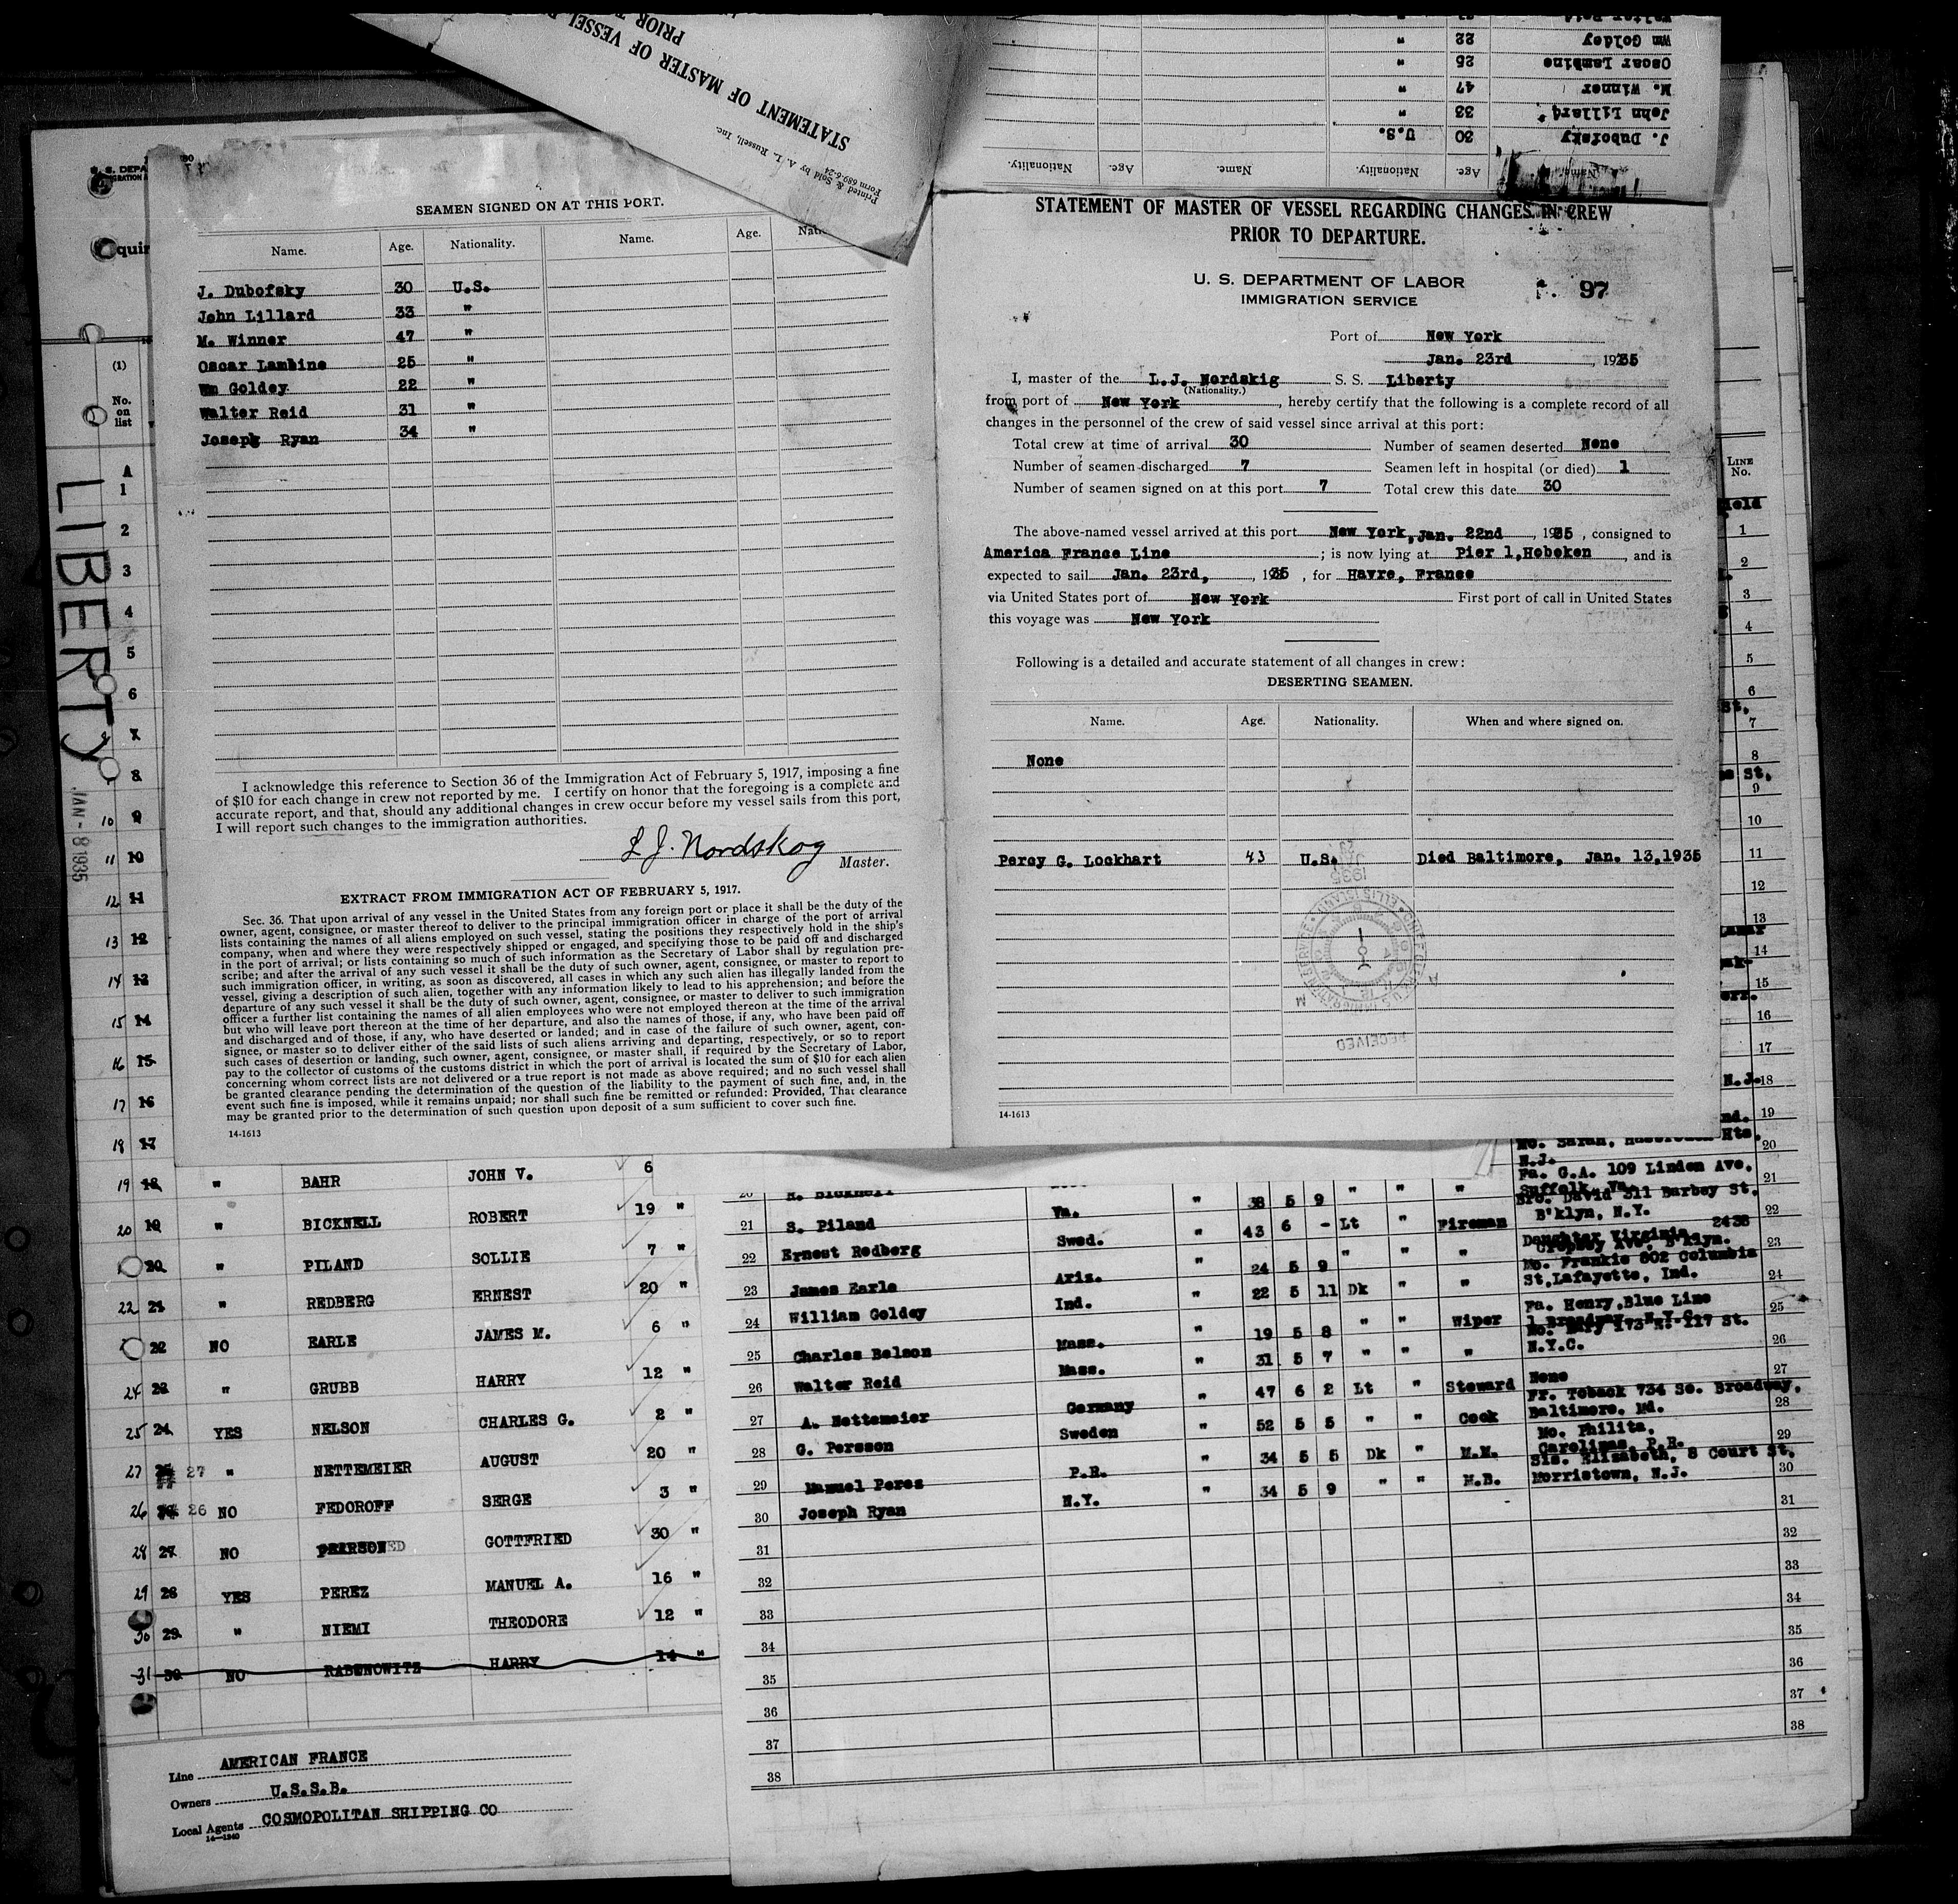 STATEMENT OF MASTER OF VESSEL
PRIOR
Printed & Sold by A. L. Russell, Inc.
Form 689-6-24
Wm Goldey 22 "
Oscar Lambine 25 "
M. Winner 47 "
John Lillard 33 "
J. Dubofsky 30 U.S.
Age. Nationality. Name. Age. Nationality.
SEAMEN SIGNED ON AT THIS PORT.
Name. Age. Nationality. Name. Age.
J. Dubofsky 30 U.S.
John Lillard 33 "
M. Winner 47 "
Oscar Lambine 25 "
Wm Goldey 22 "
Walter Reid 31 "
Joseph Ryan 34 "
I acknowledge this reference to Section 36 of the Immigration Act of February 5, 1917, imposing a fine
of $10 for each change in crew not reported by me. I certify on honor that the foregoing is a complete and
accurate report, and that, should any additional changes in crew occur before my vessel sails from this port,
I will report such changes to the immigration authorities.
L J. Nordskog
Master.
EXTRACT FROM IMMIGRATION ACT OF FEBRUARY 5, 1917.
Sec. 36. That upon arrival of any vessel in the United States from any foreign port or place it shall be the duty of the
owner, agent, consignee, or master thereof to deliver to the principal immigration officer in charge of the port of arrival
lists containing the names of all aliens employed on such vessel, stating the positions they respectively hold in the ship's
company, when and where they were respectively shipped or engaged, and specifying those to be paid off and discharged
in the port of arrival; or lists containing so much of such information as the Secretary of Labor shall by regulation pre-
scribe; and after the arrival of any such vessel it shall be the duty of such owner, agent, consignee, or master to report to
such immigration officer, in writing, as soon as discovered, all cases in which any such alien has illegally landed from the
vessel, giving a description of such alien, together with any information likely to lead to his apprehension; and before the
departure of any such vessel it shall be the duty of such owner, agent, consignee, or master to deliver to such immigration
officer a further list containing the names of all alien employees who were not employed thereon at the time of the arrival
but who will leave port thereon at the time of her departure, and also the names of those, if any, who have been paid off
and discharged and of those, if any, who have deserted or landed; and in case of the failure of such owner, agent, con-
signee, or master so to deliver either of the said lists of such aliens arriving and departing, respectively, or so to report
such cases of desertion or landing, such owner, agent, consignee, or master shall, if required by the Secretary of Labor,
pay to the collector of customs of the customs district in which the port of arrival is located the sum of $10 for each alien
concerning whom correct lists are not delivered or a true report is not made as above required; and no such vessel shall
be granted clearance pending the determination of the question of the liability to the payment of such fine, and, in the
event such fine is imposed, while it remains unpaid; nor shall such fine be remitted or refunded: Provided, That clearance
may be granted prior to the determination of such question upon deposit of a sum sufficient to cover such fine.
14-1613
STATEMENT OF MASTER OF VESSEL REGARDING CHANGES IN CREW
PRIOR TO DEPARTURE.
U. S. DEPARTMENT OF LABOR
IMMIGRATION SERVICE
97
Port of New York
Jan. 23rd, 1935
I, master of the L.J. Nordskig S. S. Liberty
(Nationality.)
from port of New York, hereby certify that the following is a complete record of all
changes in the personnel of the crew of said vessel since arrival at this port:
Total crew at time of arrival 30 Number of seamen deserted None
Number of seamen discharged 7 Seamen left in hospital (or died) 1
Number of seamen signed on at this port 7 Total crew this date 30
The above-named vessel arrived at this port New York, Jan. 22nd, 1935, consigned to
America France Line; is now lying at Pier 1, Hoboken, and is
expected to sail Jan. 23rd, 1935, for Havre, France
via United States port of New York First port of call in United States
this voyage was New York
Following is a detailed and accurate statement of all changes in crew:
DESERTING SEAMEN.
Name. Age. Nationality. When and where signed on.
None
Percy G. Lockhart 43 U.S. Died Baltimore, Jan. 13, 1935
RECEIVED
14-1613
LIBERTY
JAN - 8 1935
(1)
No.
on
list
A
1
2
3
4
5
6
7
8
10 9
11 10
12 11
13 12
14 13
15 14
16 15
17 16
18 17
19 18 " BAHR JOHN V. 6
20 19 " BICKNELL ROBERT 19 "
20 " PILAND SOLLIE 7 "
22 21 " REDBERG ERNEST 20 "
22 NO EARLE JAMES M. 6 "
24 23 " GRUBB HARRY 12 "
25 24 YES NELSON CHARLES G. 2 "
27 27 " NETTEMEIER AUGUST 20 "
26 26 NO FEDOROFF SERGE 3 "
28 27 NO GOTTFRIED 30 "
29 28 YES PEREZ MANUEL A. 16 "
30 29 " NIEMI THEODORE 12 "
31 30 NO RABENOWITZ HARRY 14 "
Line AMERICAN FRANCE
Owners U.S.S.B.
Local Agents COSMOPOLITAN SHIPPING CO
14-1240
LINE
No.
1
2
3
4
5
6
7
8
9
10
11
12
13
14
15
16
17
N.J. 18
19
20
21 S. Piland Va. " 38 5 9 " " " Fa. G.A. 109 Linden Ave. Suffolk, Va. 21
22 Ernest Redberg Swed. " 43 6 - Lt " Fireman Bro. David 311 Barbey St. B'klyn, N.Y. 22
23 James Earle Ariz. " 24 5 9 " " " Daughter Virginia 2438 Cropsey Ave. B'klyn. 23
24 William Goldey Ind. " 22 5 11 Dk " " Mo. Frankie 802 Columbia St, Lafayette, Ind. 24
25 Charles Belson Mass. " 19 5 8 " " Wiper Fa. Henry, Blue Line 1 Broadway, N.Y.C. 25
26 Walter Reid Mass. " 31 5 7 " " " Mo. Mary 173 E. 117 St. N.Y.C. 26
27 A. Nettemeier Germany " 47 6 2 Lt " Steward None 27
28 G. Persson Sweden " 52 5 5 " " Cook Fr. Toback 734 So. Broadway, Baltimore, Md. 28
29 Manuel Perez P.R. " 34 5 5 Dk " M.M. Mo. Philita, Carolinas, P.R. 29
30 Joseph Ryan N.Y. " 34 5 9 " " M.B. Sis. Elizabeth, 8 Court St. Morristown, N.J. 30
31 31
32 32
33 33
34 34
35 35
36 36
37 37
38 38